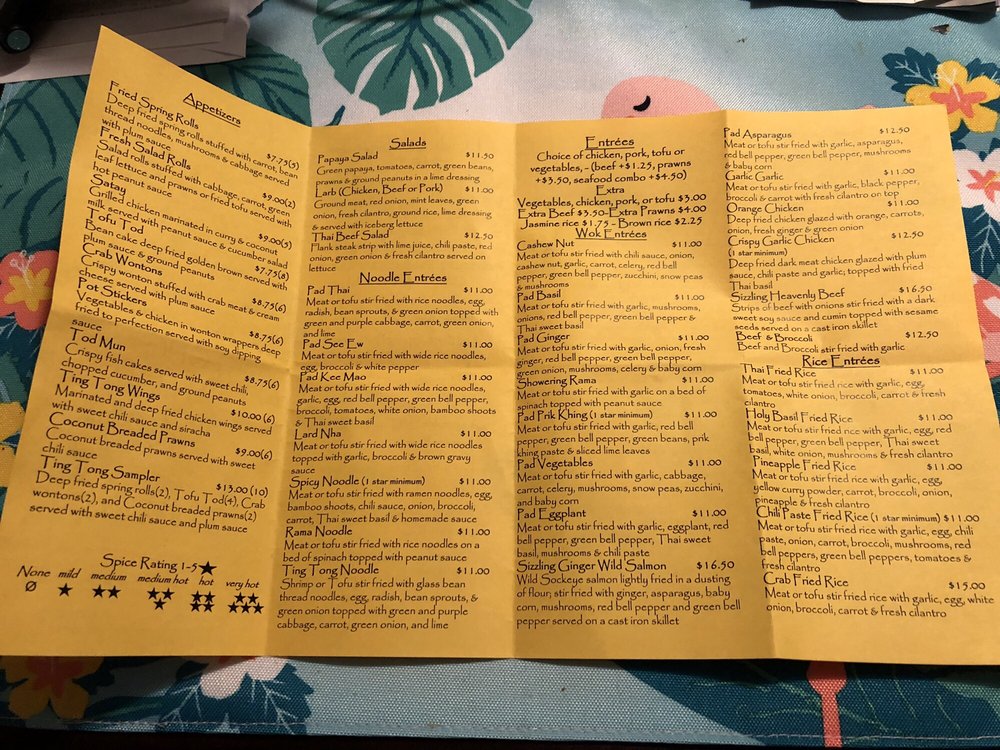 Appetizers
Fried Spring Rolls
Deep fried spring rolls stuffed with carrot, bean
thread noodles, mushrooms & cabbage served
with plum sauce $7.75(5)
Fresh Salad Rolls
Salad rolls stuffed with cabbage, carrot, green
leaf lettuce and prawns or fried tofu served with
hot peanut sauce $9.00(2)
Satay
Grilled chicken marinated in curry & coconut
milk served with peanut sauce & cucumber salad
$9.00(5)
Tofu Tod
Bean cake deep fried golden brown served with
plum sauce & ground peanuts $7.75(8)
Crab Wontons
Crispy wonton stuffed with crab meat & cream
cheese served with plum sauce $8.75(6)
Pot Stickers
Vegetables & chicken in wonton wrappers deep
fried to perfection served with soy dipping
sauce $8.75(6)
Tod Mun
Crispy fish cakes served with sweet chili,
chopped cucumber, and ground peanuts
$8.75(6)
Ting Tong Wings $10.00 (6)
Marinated and deep fried chicken wings served
with sweet chili sauce and siracha
Coconut Breaded Prawns $9.00(6)
Coconut breaded prawns served with sweet
chili sauce
Ting Tong Sampler $13.00 (10)
Deep fried spring rolls(2), Tofu Tod(4), Crab
wontons(2), and Coconut breaded prawns(2)
served with sweet chili sauce and plum sauce
Spice Rating 1-5★
None mild medium medium hot hot very hot
Ø ★ ★★ ★★★ ★★★★ ★★★★★
Salads
Papaya Salad $11.50
Green papaya, tomatoes, carrot, green beans,
prawns & ground peanuts in a lime dressing
Larb (Chicken, Beef or Pork) $11.00
Ground meat, red onion, mint leaves, green
onion, fresh cilantro, ground rice, lime dressing
& served with iceberg lettuce
Thai Beef Salad $12.50
Flank steak strip with lime juice, chili paste, red
onion, green onion & fresh cilantro served on
lettuce
Noodle Entrées
Pad Thai $11.00
Meat or tofu stir fried with rice noodles, egg,
radish, bean sprouts, & green onion topped with
green and purple cabbage, carrot, green onion,
and lime
Pad See Ew $11.00
Meat or tofu stir fried with wide rice noodles,
egg, broccoli & white pepper
Pad Kee Mao $11.00
Meat or tofu stir fried with wide rice noodles,
garlic, egg, red bell pepper, green bell pepper,
broccoli, tomatoes, white onion, bamboo shoots
& Thai sweet basil
Lard Nha $11.00
Meat or tofu stir fried with wide rice noodles
topped with garlic, broccoli & brown gravy
sauce
Spicy Noodle (1 star minimum) $11.00
Meat or tofu stir fried with ramen noodles, egg,
bamboo shoots, chili sauce, onion, broccoli,
carrot, Thai sweet basil & homemade sauce
Rama Noodle $11.00
Meat or tofu stir fried with rice noodles on a
bed of spinach topped with peanut sauce
Ting Tong Noodle $11.00
Shrimp or Tofu stir fried with glass bean
thread noodles, egg, radish, bean sprouts, &
green onion topped with green and purple
cabbage, carrot, green onion, and lime
Entrées
Choice of chicken, pork, tofu or
vegetables, - (beef +$1.25, prawns
+$3.50, seafood combo +$4.50)
Extra
Vegetables, chicken, pork, or tofu $3.00
Extra Beef $3.50-Extra Prawns $4.00
Jasmine rice $1.75 - Brown rice $2.25
Wok Entrées
Cashew Nut $11.00
Meat or tofu stir fried with chili sauce, onion,
cashew nut, garlic, carrot, celery, red bell
pepper, green bell pepper, zucchini, snow peas
& mushrooms
Pad Basil $11.00
Meat or tofu stir fried with garlic, mushrooms,
onions, red bell pepper, green bell pepper &
Thai sweet basil
Pad Ginger $11.00
Meat or tofu stir fried with garlic, onion, fresh
ginger, red bell pepper, green bell pepper,
green onion, mushrooms, celery & baby corn
Showering Rama $11.00
Meat or tofu stir fried with garlic on a bed of
spinach topped with peanut sauce
Pad Prik Khing (1 star minimum) $11.00
Meat or tofu stir fried with garlic, red bell
pepper, green bell pepper, green beans, prik
khing paste & sliced lime leaves
Pad Vegetables $11.00
Meat or tofu stir fried with garlic, cabbage,
carrot, celery, mushrooms, snow peas, zucchini,
and baby corn
Pad Eggplant $11.00
Meat or tofu stir fried with garlic, eggplant, red
bell pepper, green bell pepper, Thai sweet
basil, mushrooms & chili paste
Sizzling Ginger Wild Salmon $16.50
Wild Sockeye salmon lightly fried in a dusting
of flour; stir fried with ginger, asparagus, baby
corn, mushrooms, red bell pepper and green bell
pepper served on a cast iron skillet
Pad Asparagus $12.50
Meat or tofu stir fried with garlic, asparagus,
red bell pepper, green bell pepper, mushrooms
& baby corn
Garlic Garlic $11.00
Meat or tofu stir fried with garlic, black pepper,
broccoli & carrot with fresh cilantro on top
Orange Chicken $11.00
Deep fried chicken glazed with orange, carrots,
onion, fresh ginger & green onion
Crispy Garlic Chicken $12.50
(1 star minimum)
Deep fried dark meat chicken glazed with plum
sauce, chili paste and garlic; topped with fried
Thai basil
Sizzling Heavenly Beef $16.50
Strips of beef with onions stir fried with a dark
sweet soy sauce and cumin topped with sesame
seeds served on a cast iron skillet
Beef & Broccoli $12.50
Beef and Broccoli stir fried with garlic
Rice Entrées
Thai Fried Rice $11.00
Meat or tofu stir fried rice with garlic, egg,
tomatoes, white onion, broccoli, carrot & fresh
cilantro
Holy Basil Fried Rice $11.00
Meat or tofu stir fried rice with garlic, egg, red
bell pepper, green bell pepper, Thai sweet
basil, white onion, mushrooms & fresh cilantro
Pineapple Fried Rice $11.00
Meat or tofu stir fried rice with garlic, egg,
yellow curry powder, carrot, broccoli, onion,
pineapple & fresh cilantro
Chili Paste Fried Rice (1 star minimum) $11.00
Meat or tofu stir fried rice with garlic, egg, chili
paste, onion, carrot, broccoli, mushrooms, red
bell peppers, green bell peppers, tomatoes &
fresh cilantro
Crab Fried Rice $15.00
Meat or tofu stir fried rice with garlic, egg, white
onion, broccoli, carrot & fresh cilantro